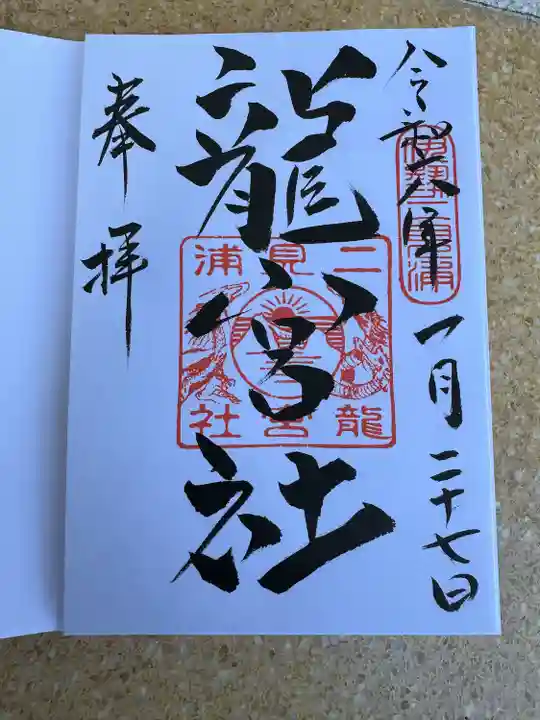 令和六年一月二十七日
龍宮社
奉拝
二見浦
龍宮社